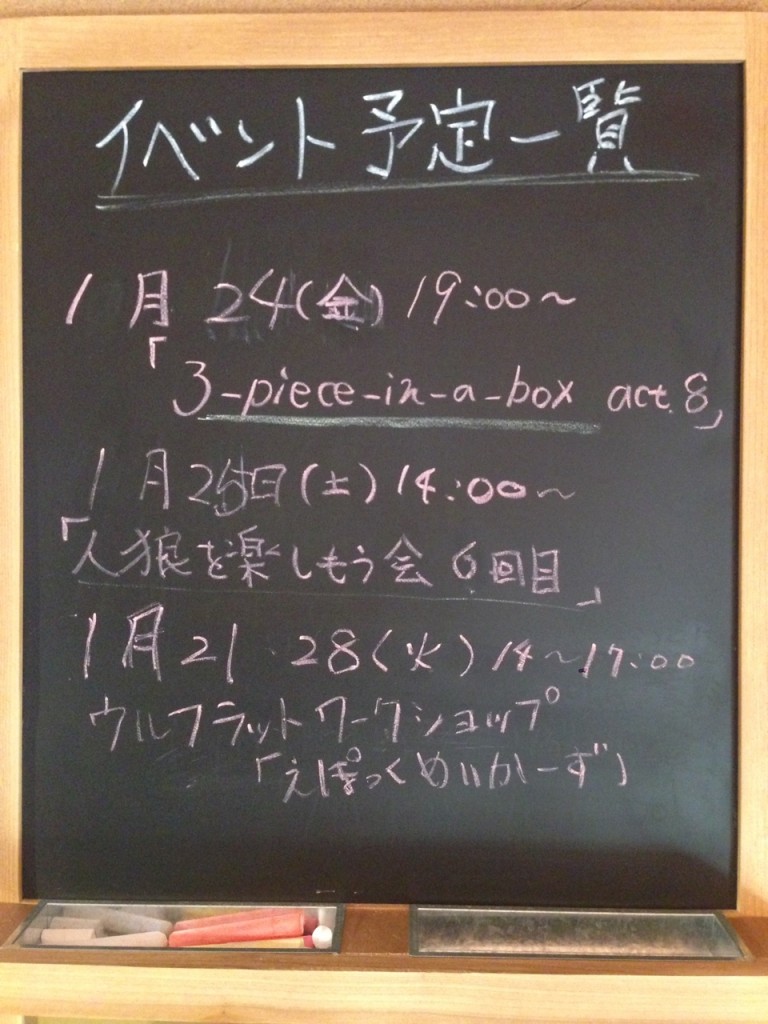 イベント予定一覧
1月 24(金) 19:00~
「3-piece-in-a-box act.8」
1月25日(土) 14:00~
「人狼を楽しもう会 6回目」
1月21・28(火) 14~17:00
ウルフラットワークショップ
「えぽっくめいかーず」